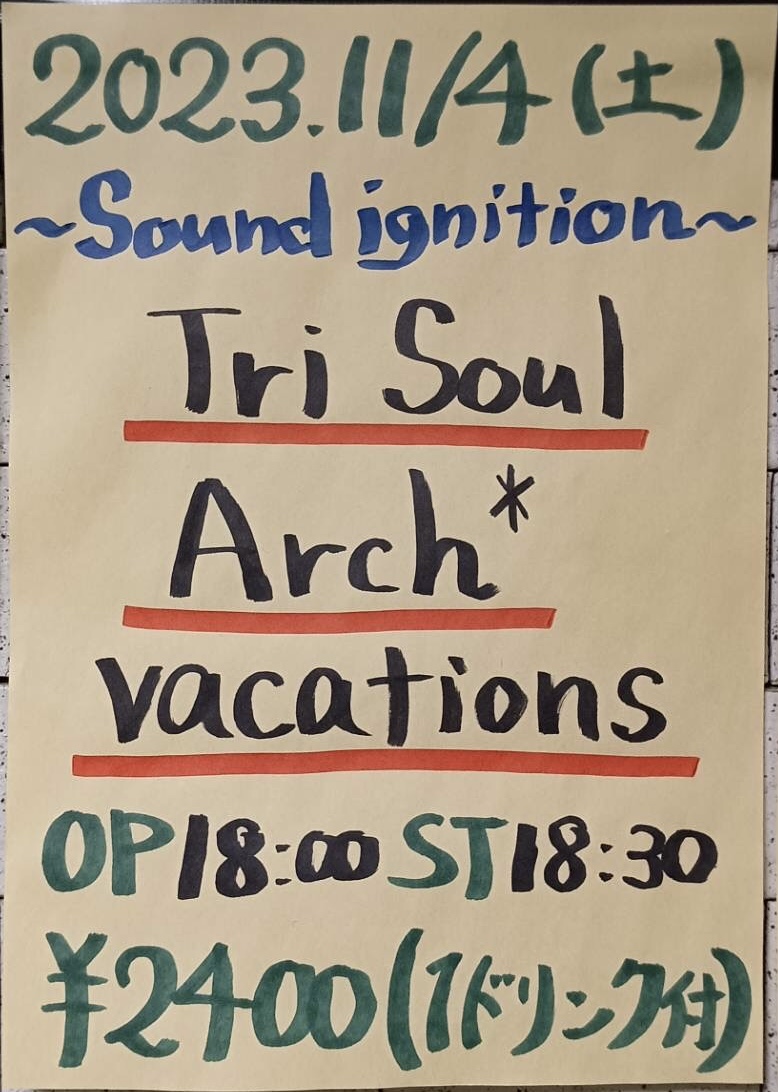 2023.11/4(土)
~Sound ignition~
Tri Soul
Arch*
vacations
OP18:00 ST18:30
¥2400(1ドリンク付)